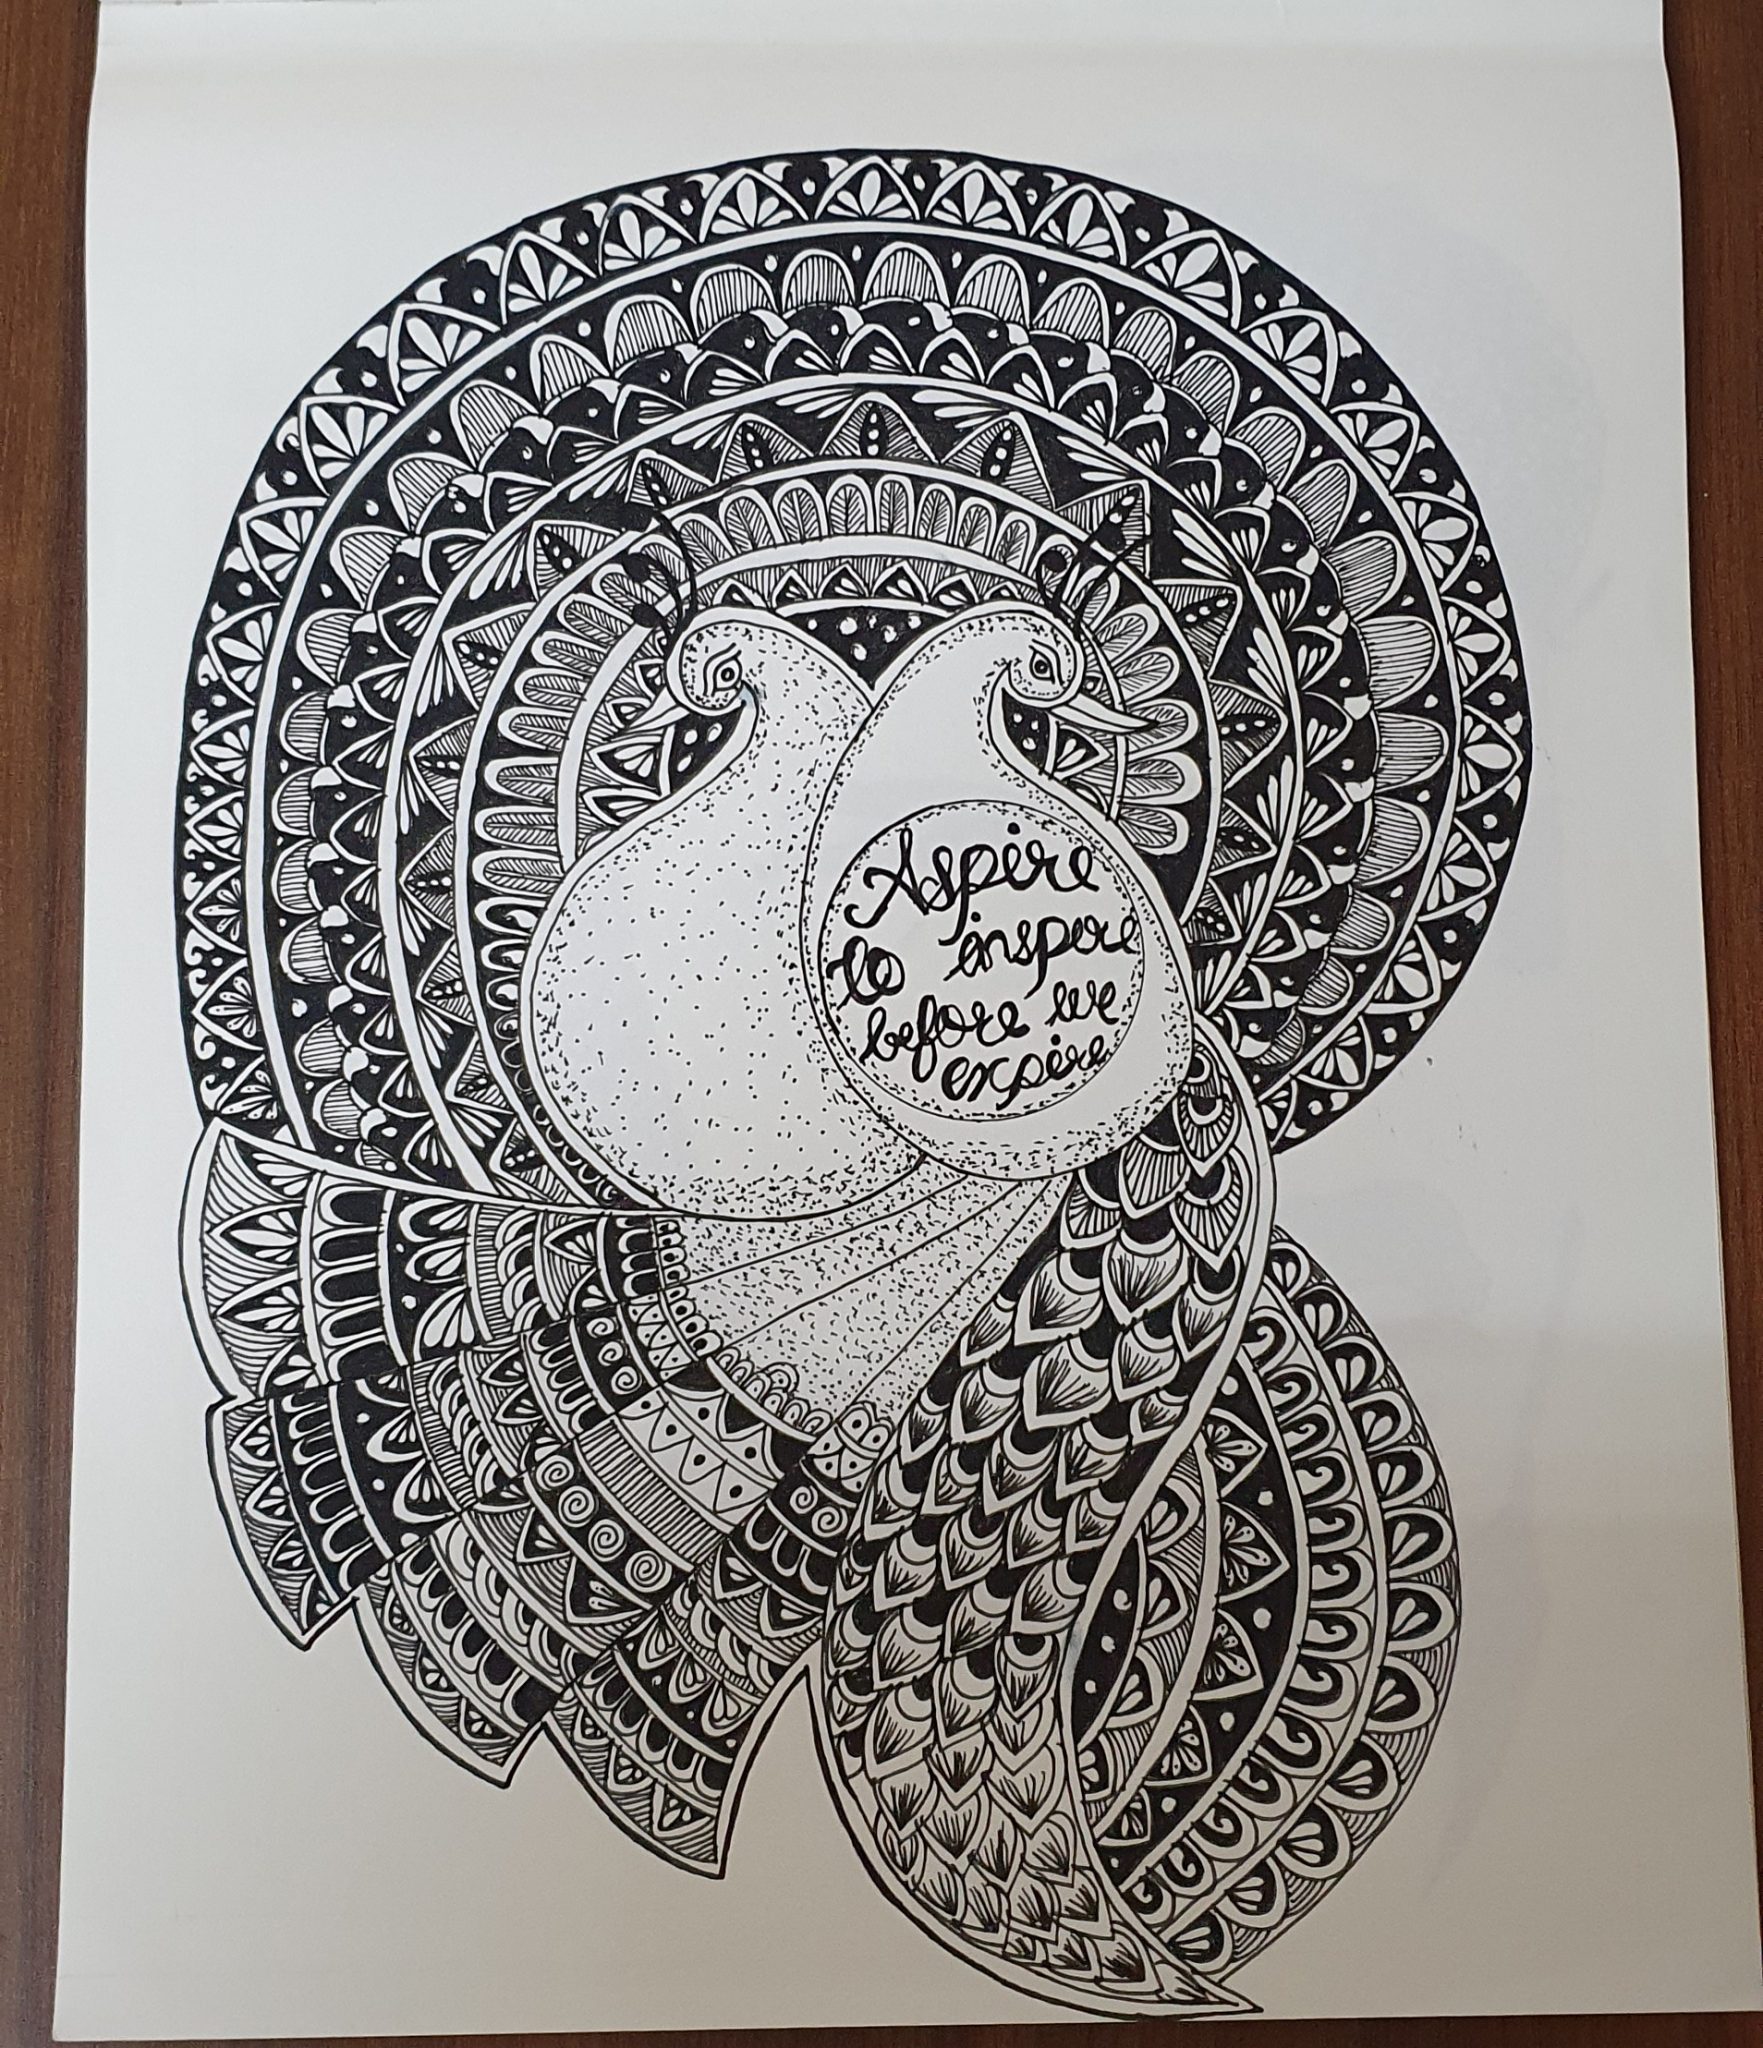 Aspire
to inspire
before we
expire